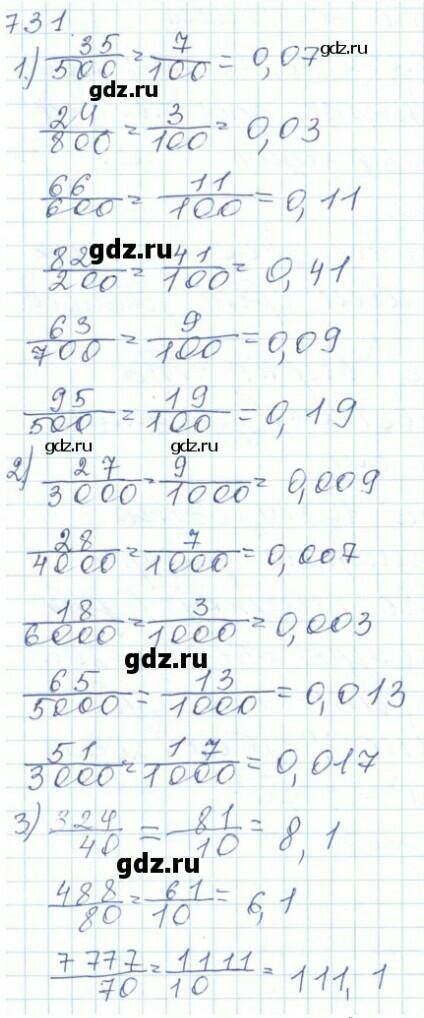 731.
1.) 35/500 = 7/100 = 0,07
gdz.ru
24/800 = 3/100 = 0,03
66/600 = 11/100 = 0,11
gdz.ru
82/200 = 41/100 = 0,41
63/700 = 9/100 = 0,09
gdz.ru
95/500 = 19/100 = 0,19
gdz.ru gdz.ru
2) 27/3000 = 9/1000 = 0,009
28/4000 = 7/1000 = 0,007
18/6000 = 3/1000 = 0,003
gdz.ru
65/5000 = 13/1000 = 0,013
51/3000 = 17/1000 = 0,017
3) 324/40 = 81/10 = 8,1
gdz.ru
488/80 = 61/10 = 6,1
7777/70 = 1111/10 = 111,1
gdz.ru